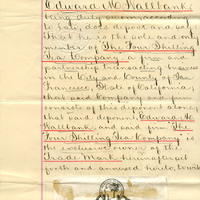 Edward M. Wallbank,
being duly sworn, according
to law, does depose and say
that he is the sole and only
member of "The Four Shilling
Tea Company" a firm and
partnership transacting business
in the City and County of San
Francisco, State of California;
that said Company and firm
consists of this deponent alone;
that said deponent, Edward M.
Wallbank, and said firm "The
Four Shilling Tea Company" is
the exclusive owner of the
Trade Mark hereinafter set
forth and annexed hereto,